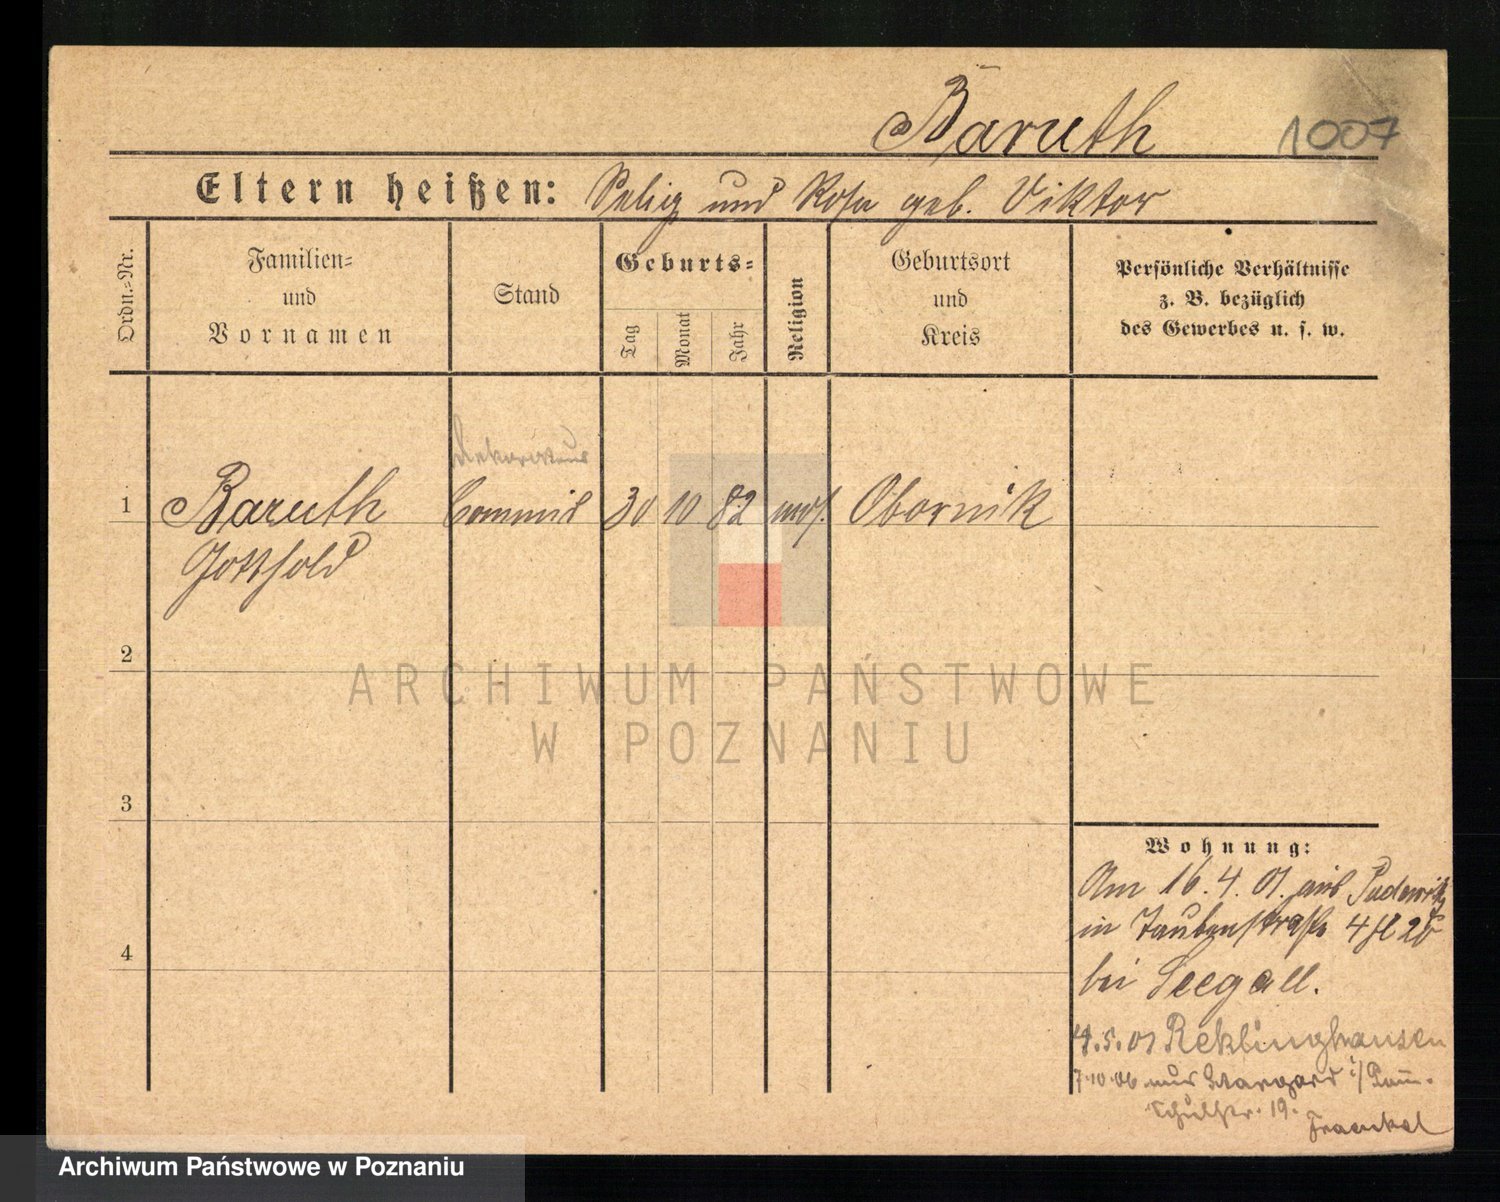 Baruth
1007
Eltern heißen: Selig und Rosa geb. Viktor
Ordn.-Nr.
Familien- und Vornamen
Stand
Geburts-
Tag
Monat
Jahr
Religion
Geburtsort und Kreis
Persönliche Verhältnisse z. B. bezüglich des Gewerbes u. s. w.
Dekorateur
1 Baruth Commis 30 10 82 mos. Obornik
Gotthold
2
ARCHIWUM PAŃSTWOWE
W POZNANIU
3
Wohnung:
Am 16.4.01. aus Pudewitz
in Taubenstraße 4
4
bei Seegall.
4.5.01 Reklinghausen
7.10.06 aus Stargard i/Pom.
Schulstr. 19.
Fraenkel
Archiwum Państwowe w Poznaniu